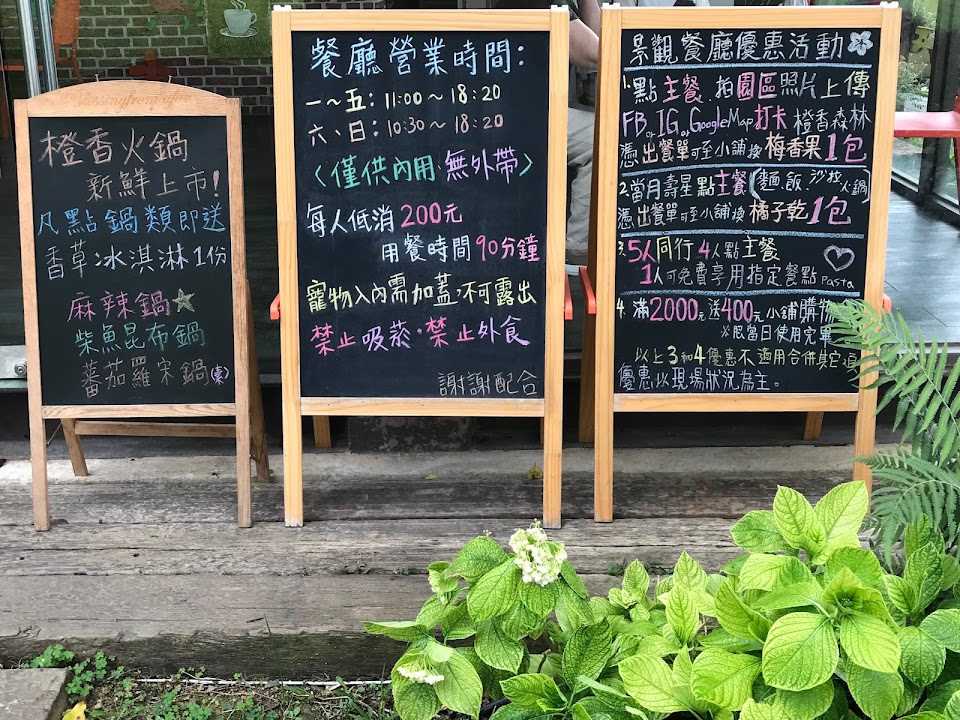 橙香火鍋
新鮮上市!
凡點鍋類即送
香草冰淇淋1份
麻辣鍋☆
柴魚昆布鍋
蕃茄羅宋鍋(素)
餐廳營業時間:
一~五: 11:00~18:20
六、日: 10:30~18:20
〈僅供內用·無外帶〉
每人低消200元
用餐時間90分鐘
寵物入內需加蓋,不可露出
禁止吸菸·禁止外食
謝謝配合
景觀餐廳優惠活動
1.點主餐.拍園區照片上傳
FB or IG or GoogleMap打卡 橙香森林
憑出餐單可至小舖換梅香果1包
2.當月壽星點主餐(麵、飯、沙拉、火鍋)
憑出餐單可至小舖換橘子乾1包
3.5人同行4人點主餐
1人可免費享用指定餐點Pasta
4.滿2000元送400元小舖購物
※限當日使用完畢
以上3和4優惠不適用合併其它
優惠以現場狀況為主。